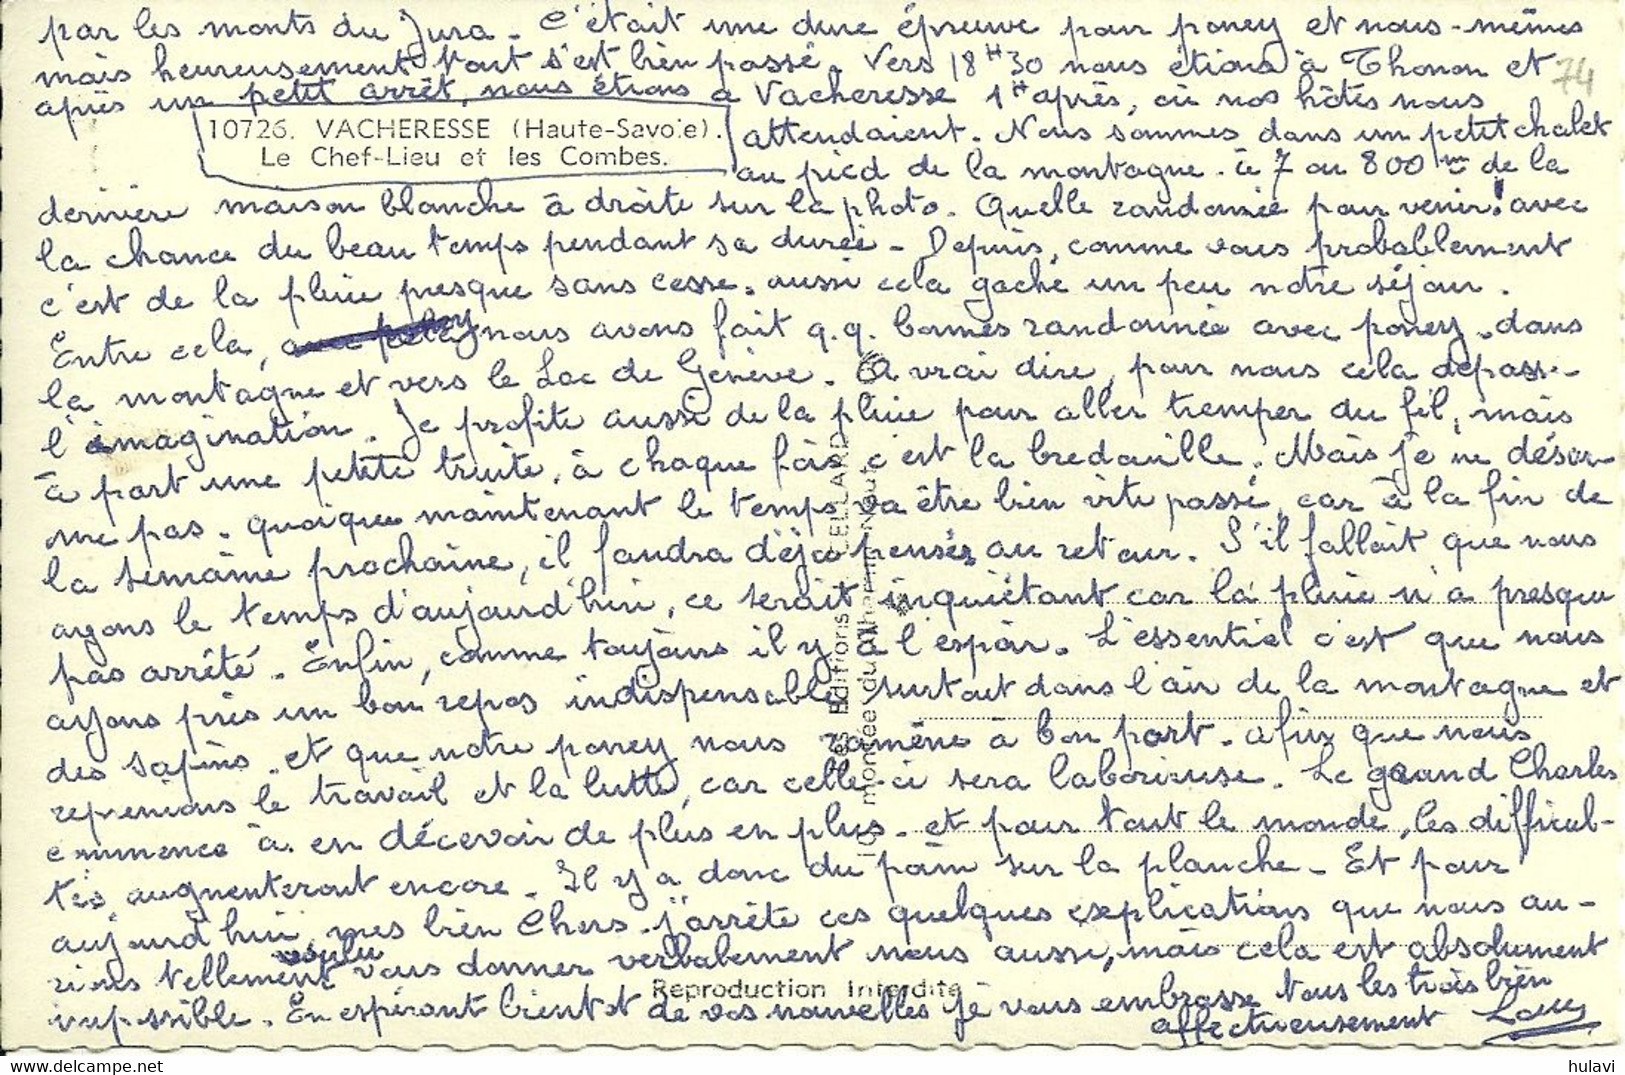 par les monts du Jura. C'était une dure épreuve pour poney et nous-mêmes
mais heureusement tout s'est bien passé. Vers 18H30 nous étions à Thonon et
74
après un petit arrêt, nous étions à Vacheresse 1H après, où nos hôtes nous
10726. VACHERESSE (Haute-Savoie).
Le Chef-Lieu et les Combes.
attendaient. Nous sommes dans un petit chalet
au pied de la montagne. à 7 ou 800m de la
dernière maison blanche à droite sur la photo. Quelle randonnée pour venir! avec
la chance du beau temps pendant sa durée - Depuis, comme vous probablement
c'est de la pluie presque sans cesse. aussi cela gache un peu notre séjour.
Entre cela, nous avons fait q.q. bonnes randonnées avec poney. dans
la montagne et vers le Lac de Genève. A vrai dire, pour nous cela dépasse
l'imagination. Je profite aussi de la pluie pour aller tremper du fil, mais
à part une petite truite, à chaque fois c'est la bredouille. Mais je ne désar-
me pas. quoique maintenant le temps va être bien vite passé, car à la fin de
la semaine prochaine, il faudra déjà penser au retour. S'il fallait que nous
ayons le temps d'aujourd'hui, ce serait inquiétant car la pluie n'a presque
pas arrêté. Enfin, comme toujours il y a l'espoir. L'essentiel c'est que nous
ayons pris un bon repos indispensable surtout dans l'air de la montagne et
des sapins. et que notre poney nous ramène à bon port. afin que nous
reprenions le travail et la lutte, car celle-ci sera laborieuse. Le grand Charles
commence à en décevoir de plus en plus. et pour tout le monde, les difficul-
tés augmenteront encore. Il y a donc du pain sur la planche. Et pour
aujourd'hui, mes bien Chers. j'arrête ces quelques explications que nous au-
rions tellement voulu vous donner verbalement nous aussi, mais cela est absolument
impossible. En espérant bientôt de vos nouvelles je vous embrasse tous les trois bien
affectueusement Louis
Les Editions CELLARD
10, montée du
Reproduction Interdite
hulavi